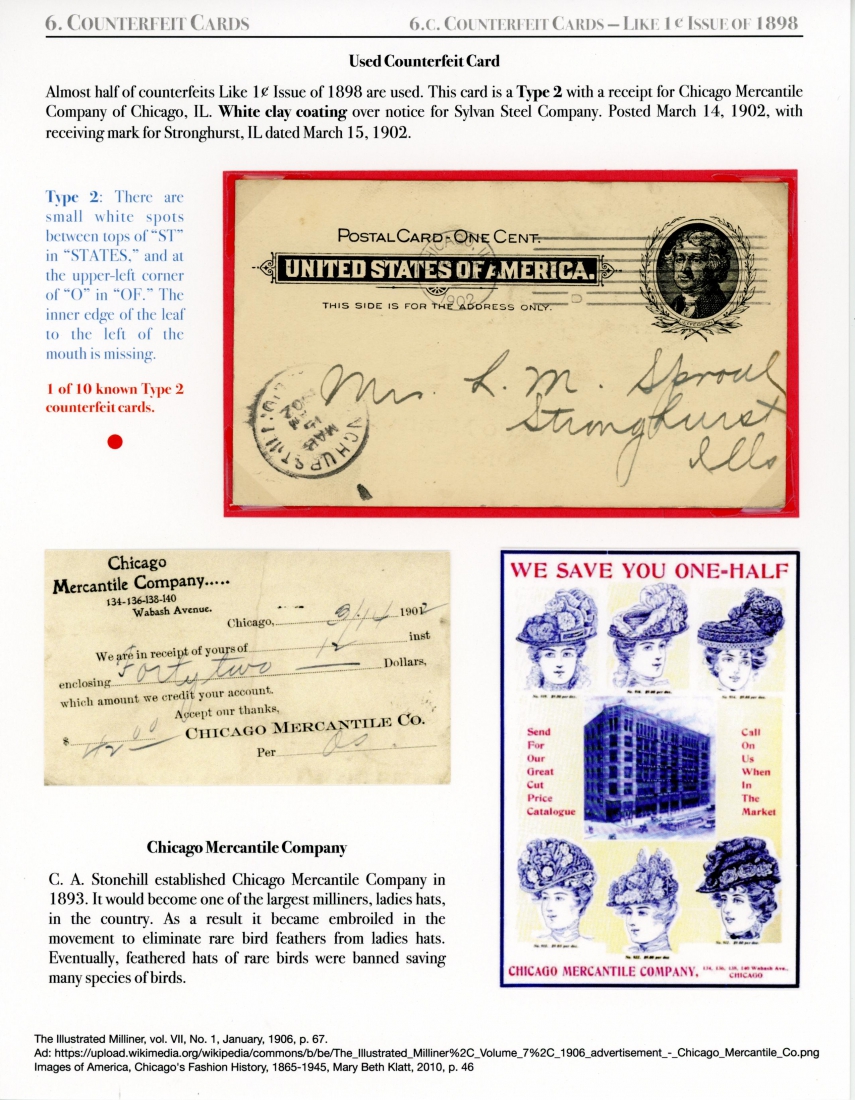 6. COUNTERFEIT CARDS
6.C. COUNTERFEIT CARDS – LIKE 1¢ ISSUE OF 1898
Used Counterfeit Card
Almost half of counterfeits Like 1¢ Issue of 1898 are used. This card is a Type 2 with a receipt for Chicago Mercantile
Company of Chicago, IL. White clay coating over notice for Sylvan Steel Company. Posted March 14, 1902, with
receiving mark for Stronghurst, IL dated March 15, 1902.
Type 2: There are
small white spots
between tops of “ST”
in “STATES,” and at
the upper-left corner
of “O” in “OF.” The
inner edge of the leaf
to the left of the
mouth is missing.
1 of 10 known Type 2
counterfeit cards.
POSTAL CARD - ONE CENT.
UNITED STATES OF AMERICA.
THIS SIDE IS FOR THE ADDRESS ONLY.
1902
Mr. L. M. Sproul
Stronghurst
Ills
Chicago
Mercantile Company.....
134-136-138-140
Wabash Avenue.
Chicago, 3/14 1902
We are in receipt of yours of 12 inst
enclosing Forty two Dollars,
which amount we credit your account.
Accept our thanks,
$ 42.00 CHICAGO MERCANTILE CO.
Per
WE SAVE YOU ONE-HALF
Send
For
Our
Great
Cut
Price
Catalogue
Call
On
Us
When
In
The
Market
CHICAGO MERCANTILE COMPANY, 134, 136, 138, 140 Wabash Ave., CHICAGO
Chicago Mercantile Company
C. A. Stonehill established Chicago Mercantile Company in
1893. It would become one of the largest milliners, ladies hats,
in the country. As a result it became embroiled in the
movement to eliminate rare bird feathers from ladies hats.
Eventually, feathered hats of rare birds were banned saving
many species of birds.
The Illustrated Milliner, vol. VII, No. 1, January, 1906, p. 67.
Ad: https://upload.wikimedia.org/wikipedia/commons/b/be/The_Illustrated_Milliner%2C_Volume_7%2C_1906_advertisement_-_Chicago_Mercantile_Co.png
Images of America, Chicago's Fashion History, 1865-1945, Mary Beth Klatt, 2010, p. 46